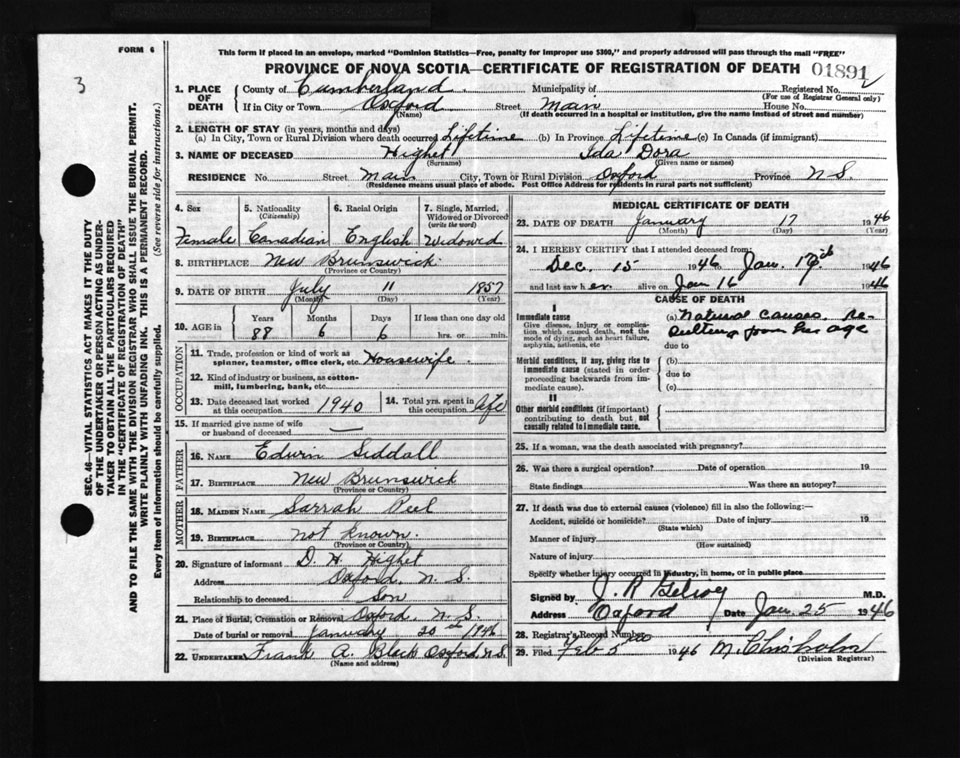 FORM 6
3
This form if placed in an envelope, marked "Dominion Statistics—Free, penalty for improper use $300," and properly addressed will pass through the mail "FREE"
PROVINCE OF NOVA SCOTIA—CERTIFICATE OF REGISTRATION OF DEATH 01891
1. PLACE OF DEATH
County of Cumberland Municipality of Registered No.
(For use of Registrar General only)
If in City or Town Oxford Street Main House No.
(Name) (If death occurred in a hospital or institution, give the name instead of street and number)
2. LENGTH OF STAY (in years, months and days)
(a) In City, Town or Rural Division where death occurred Lifetime (b) In Province Lifetime (c) In Canada (if immigrant)
3. NAME OF DECEASED Highet Ida Dora
(Surname) (Given name or names)
RESIDENCE No. Street Main City, Town or Rural Division Oxford Province N S.
(Residence means usual place of abode. Post Office Address for residents in rural parts not sufficient)
4. Sex 5. Nationality (Citizenship) 6. Racial Origin 7. Single, Married, Widowed or Divorced (write the word)
Female Canadian English Widowed
8. BIRTHPLACE New Brunswick
(Province or Country)
9. DATE OF BIRTH July 11 1857
(Month) (Day) (Year)
10. AGE in Years Months Days If less than one day old
88 6 6 hrs. or min.
OCCUPATION
11. Trade, profession or kind of work as spinner, teamster, office clerk, etc. Housewife
12. Kind of industry or business, as cotton-mill, lumbering, bank, etc.
13. Date deceased last worked at this occupation 1940 14. Total yrs. spent in this occupation life
15. If married give name of wife or husband of deceased —
FATHER
16. NAME Edwin Siddall
17. BIRTHPLACE New Brunswick
(Province or Country)
MOTHER
18. MAIDEN NAME Sarrah Peel
19. BIRTHPLACE not known
(Province or Country)
20. Signature of informant D. H. Highet
Address Oxford, N. S.
Relationship to deceased Son
21. Place of Burial, Cremation or Removal Oxford, N. S.
Date of burial or removal January 20 1946
22. UNDERTAKER Frank A. Black Oxford, N.S.
(Name and address)
MEDICAL CERTIFICATE OF DEATH
23. DATE OF DEATH January 17 1946
(Month) (Day) (Year)
24. I HEREBY CERTIFY that I attended deceased from:
Dec. 15 1946 to Jan. 17th 1946
and last saw her alive on Jan 16 1946
CAUSE OF DEATH
I
Immediate cause
Give disease, injury or complication which caused death, not the mode of dying, such as heart failure, asphyxia, asthenia, etc.
(a) Natural causes, Re-
sulting from her age
due to
Morbid conditions, if any, giving rise to immediate cause (stated in order proceeding backwards from immediate cause).
(b)
due to
(c)
II
Other morbid conditions (if important) contributing to death but not causally related to immediate cause.
25. If a woman, was the death associated with pregnancy?
26. Was there a surgical operation? Date of operation 19
State findings Was there an autopsy?
27. If death was due to external causes (violence) fill in also the following:—
Accident, suicide or homicide? Date of injury 19
(State which)
Manner of injury
(How sustained)
Nature of injury
Specify whether injury occurred in industry, in home, or in public place
Signed by J. R Gilroy M.D.
Address Oxford Date Jan. 25 1946
28. Registrar's Record Number
29. Filed Feb 5 1946 M. Chisholm
(Division Registrar)
SEC. 46—VITAL STATISTICS ACT MAKES IT THE DUTY
OF THE UNDERTAKER OR PERSON ACTING AS UNDER-
TAKER TO OBTAIN ALL THE PARTICULARS REQUIRED
IN THE "CERTIFICATE OF REGISTRATION OF DEATH"
AND TO FILE THE SAME WITH THE DIVISION REGISTRAR WHO SHALL ISSUE THE BURIAL PERMIT.
WRITE PLAINLY WITH UNFADING INK. THIS IS A PERMANENT RECORD.
Every item of information should be carefully supplied. (See reverse side for instructions.)